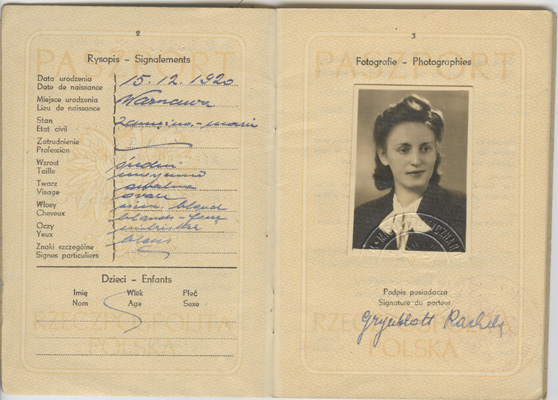 2
Rysopis – Signalements
Data urodzenia 15.12.1920
Date de naissance
Miejsce urodzenia Warszawa
Lieu de naissance
Stan
Etat civil
Zatrudnienie
Profession
Wzrost średni
Taille moyenne
Twarz owalna
Visage ovale
Włosy blond
Cheveux blonds
Oczy niebieskie
Yeux bleus
Znaki szczególne
Signes particuliers
Dzieci – Enfants
Imię Wiek Płeć
Nom Age Sexe
PASZPORT
RZECZPOSPOLITA
POLSKA
3
Fotografie – Photographies
PASZPORT
Podpis posiadacza
Signature du porteur
Grynblatt Rachela
RZECZPOSPOLITA
POLSKA